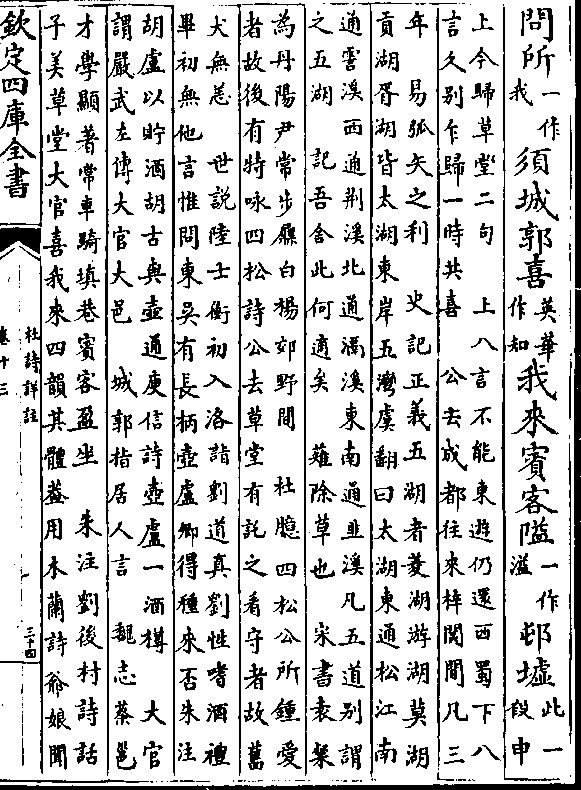 問所一作我須城郭喜英華作知我來賓客隘一作溢邨墟此一段申
上今歸草堂二句 上八言不能東遊仍還西蜀下八
言久别乍歸一時共喜 公去成都往來梓閬間凡三
年 易弧矢之利 史記正義五湖者菱湖游湖莫湖
貢湖胥湖皆太湖東岸五灣虞翻曰太湖東通松江南
通霅溪西通荆溪北通滆溪東南通韭溪凡五道别謂
之五湖 記吾舍此何適矣 薙除草也 宋書袁粲
為丹陽尹常步屧白楊郊野間 杜臆四松公所鍾愛
者故後有特咏四松詩公去草堂有託之看守者故舊
犬無恙 世說陸士衡初入洛詣劉道真劉性嗜酒禮
畢初無他言惟問東吳有長柄壺盧卿得種來否朱注
胡盧以貯酒胡古與壺通庾信詩壺盧一酒樽 大官
謂嚴武左傳大官大邑 城郭指居人言 魏志蔡邕
才學顯著常車騎填巷賓客盈坐 朱注劉後村詩話
子美草堂大官喜我來四韻其體葢用木蘭詩爺娘聞
欽定四庫全書
杜詩詳註
卷十三
三十四